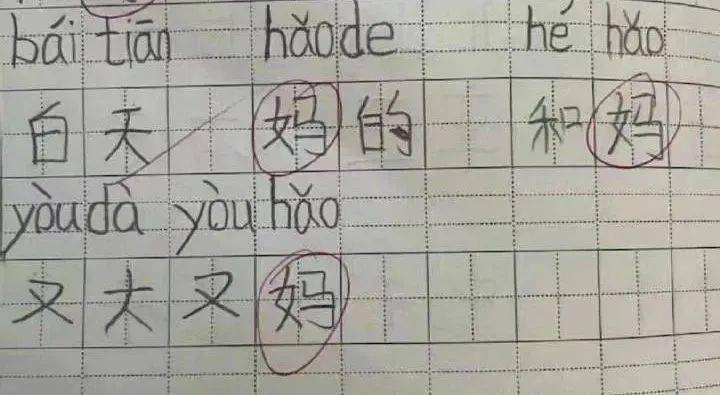 bái tiān hǎo de hé hǎo
白天 妈的 和妈
yòu dà yòu hǎo
又大又妈